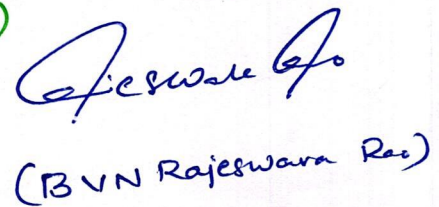 Rajeswara Rao
(BVN Rajeswara Rao)